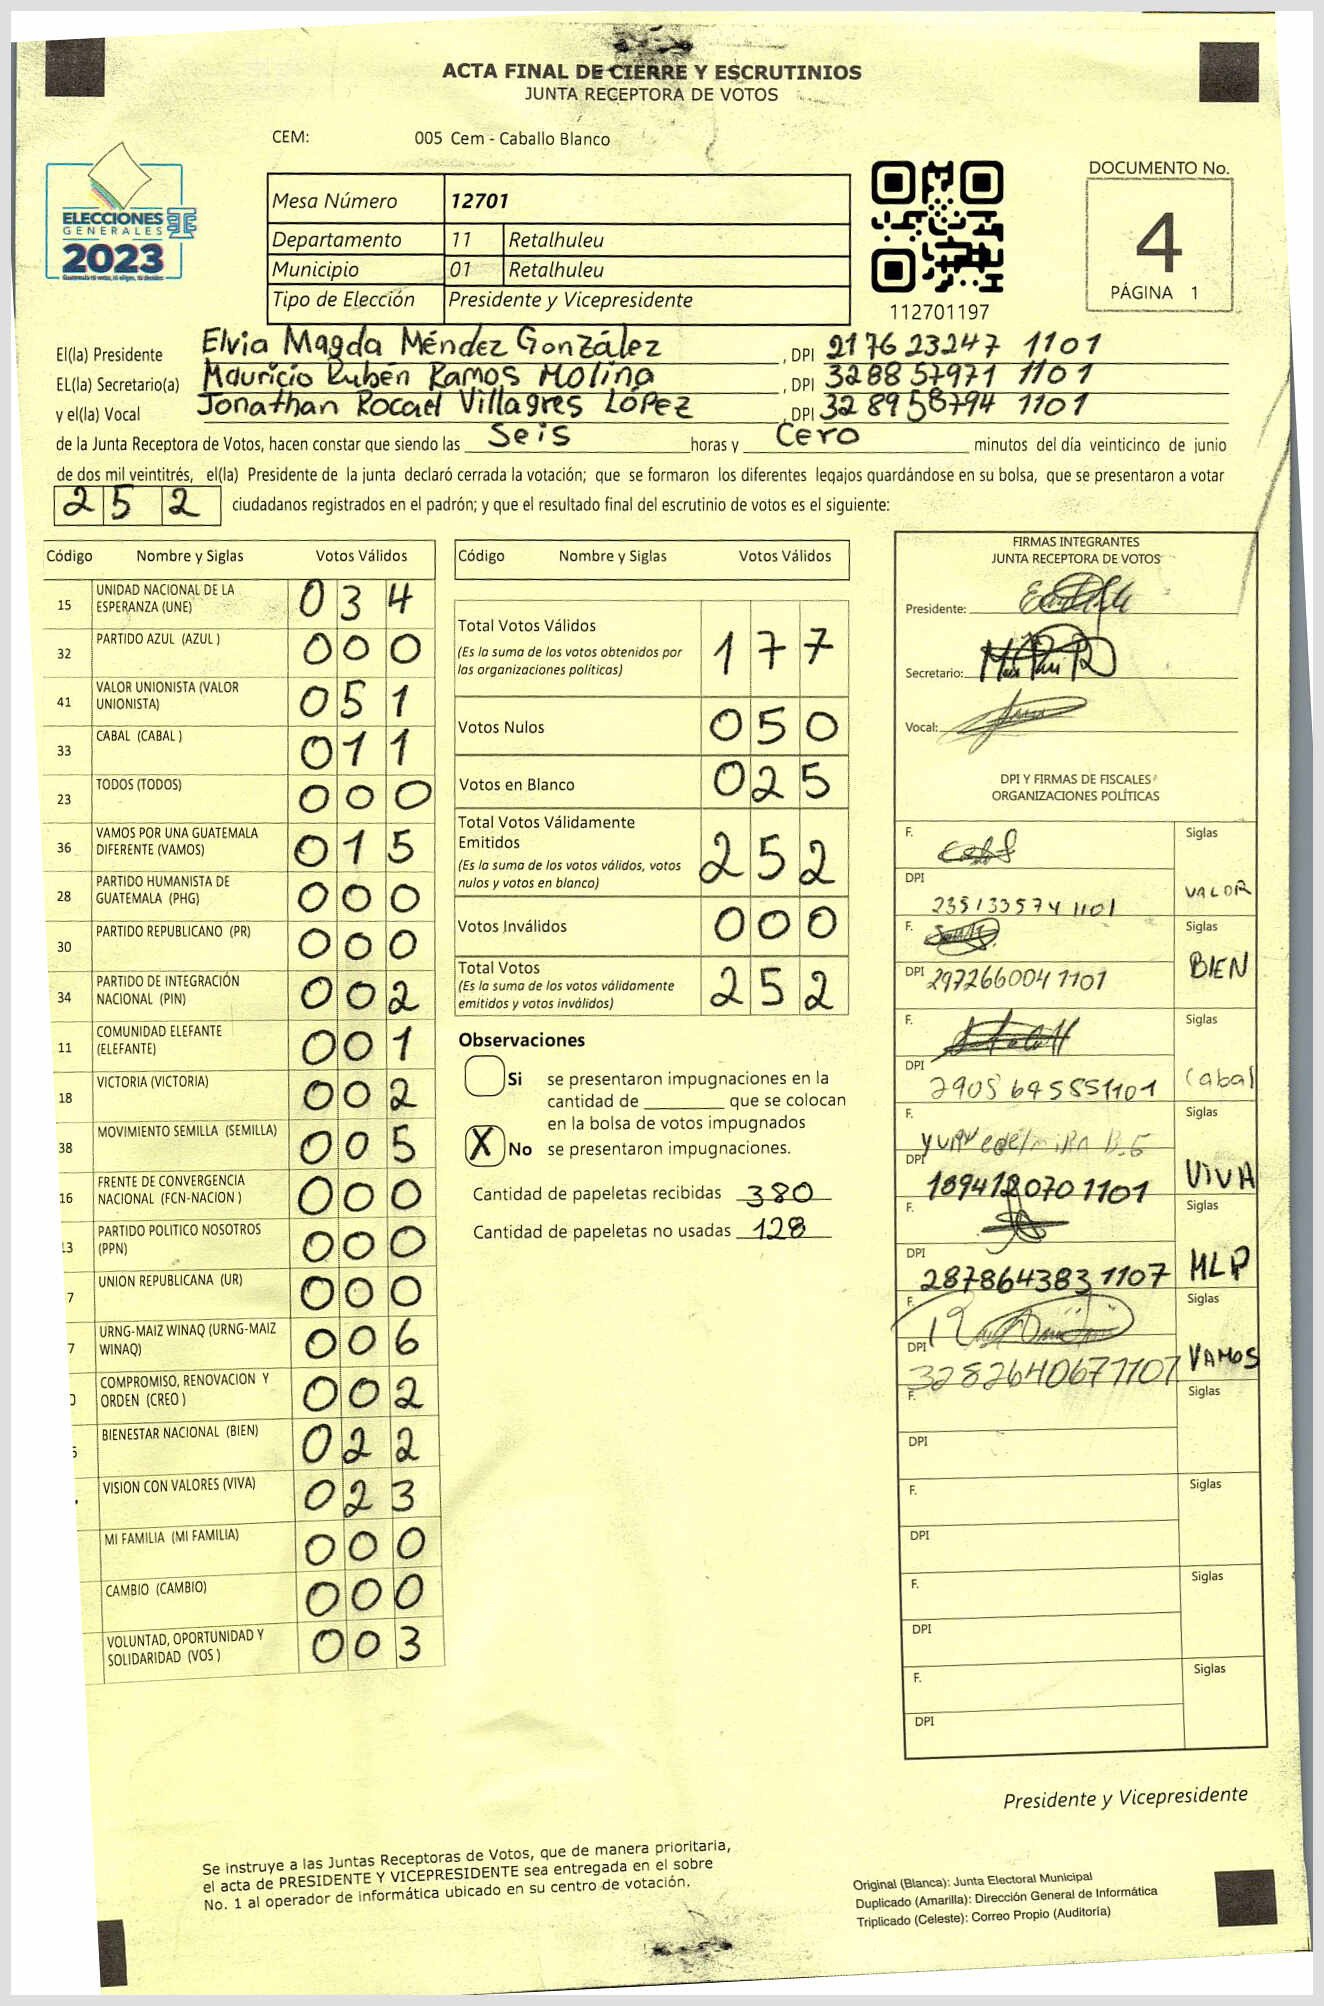 ACTA FINAL DE CIERRE Y ESCRUTINIOS
JUNTA RECEPTORA DE VOTOS
CEM: 005 Cem - Caballo Blanco
ELECCIONES
GENERALES
2023
Mesa Número 12701
Departamento 11 Retalhuleu
Municipio 01 Retalhuleu
Tipo de Elección Presidente y Vicepresidente
112701197
DOCUMENTO No.
4
PÁGINA 1
El(la) Presidente Elvia Magda Méndez González , DPI 2176 23247 1101
EL(la) Secretario(a) Mauricio Ruben Ramos Molina , DPI 3288 57971 1101
y el(la) Vocal Jonathan Rocael Villagres López , DPI 3289 58794 1101
de la Junta Receptora de Votos, hacen constar que siendo las Seis horas y Cero minutos del día veinticinco de junio
de dos mil veintitrés, el(la) Presidente de la junta declaró cerrada la votación; que se formaron los diferentes legajos guardándose en su bolsa, que se presentaron a votar
252 ciudadanos registrados en el padrón; y que el resultado final del escrutinio de votos es el siguiente:
Código Nombre y Siglas Votos Válidos
15 UNIDAD NACIONAL DE LA ESPERANZA (UNE) 034
32 PARTIDO AZUL (AZUL ) 000
41 VALOR UNIONISTA (VALOR UNIONISTA) 051
33 CABAL (CABAL ) 011
23 TODOS (TODOS) 000
36 VAMOS POR UNA GUATEMALA DIFERENTE (VAMOS) 015
28 PARTIDO HUMANISTA DE GUATEMALA (PHG) 000
30 PARTIDO REPUBLICANO (PR) 000
34 PARTIDO DE INTEGRACIÓN NACIONAL (PIN) 002
11 COMUNIDAD ELEFANTE (ELEFANTE) 001
18 VICTORIA (VICTORIA) 002
38 MOVIMIENTO SEMILLA (SEMILLA) 005
16 FRENTE DE CONVERGENCIA NACIONAL (FCN-NACION ) 000
13 PARTIDO POLITICO NOSOTROS (PPN) 000
7 UNION REPUBLICANA (UR) 000
7 URNG-MAIZ WINAQ (URNG-MAIZ WINAQ) 006
COMPROMISO, RENOVACION Y ORDEN (CREO ) 002
BIENESTAR NACIONAL (BIEN) 022
VISION CON VALORES (VIVA) 023
MI FAMILIA (MI FAMILIA) 000
CAMBIO (CAMBIO) 000
VOLUNTAD, OPORTUNIDAD Y SOLIDARIDAD (VOS ) 003
Código Nombre y Siglas Votos Válidos
Total Votos Válidos 177
(Es la suma de los votos obtenidos por
las organizaciones políticas)
Votos Nulos 050
Votos en Blanco 025
Total Votos Válidamente
Emitidos 252
(Es la suma de los votos válidos, votos
nulos y votos en blanco)
Votos Inválidos 000
Total Votos 252
(Es la suma de los votos válidamente
emitidos y votos inválidos)
Observaciones
Si se presentaron impugnaciones en la
cantidad de ________ que se colocan
en la bolsa de votos impugnados
X No se presentaron impugnaciones.
Cantidad de papeletas recibidas 380
Cantidad de papeletas no usadas 128
FIRMAS INTEGRANTES
JUNTA RECEPTORA DE VOTOS
Presidente:
Secretario:
Vocal:
DPI Y FIRMAS DE FISCALES
ORGANIZACIONES POLÍTICAS
F. Siglas
DPI 235133574 1101 VALOR
F. Siglas
DPI 297266004 1101 BIEN
F. Siglas
DPI 2905 64555 1101 Cabal
F. Siglas
DPI 189412070 1101 VIVA
F. Siglas
DPI 287864383 1107 MLP
F. Siglas
DPI 3282640671107 VAMOS
F. Siglas
DPI
F. Siglas
DPI
F. Siglas
DPI
F. Siglas
DPI
Presidente y Vicepresidente
Se instruye a las Juntas Receptoras de Votos, que de manera prioritaria,
el acta de PRESIDENTE Y VICEPRESIDENTE sea entregada en el sobre
No. 1 al operador de informática ubicado en su centro de votación.
Original (Blanca): Junta Electoral Municipal
Duplicado (Amarilla): Dirección General de Informática
Triplicado (Celeste): Correo Propio (Auditoría)